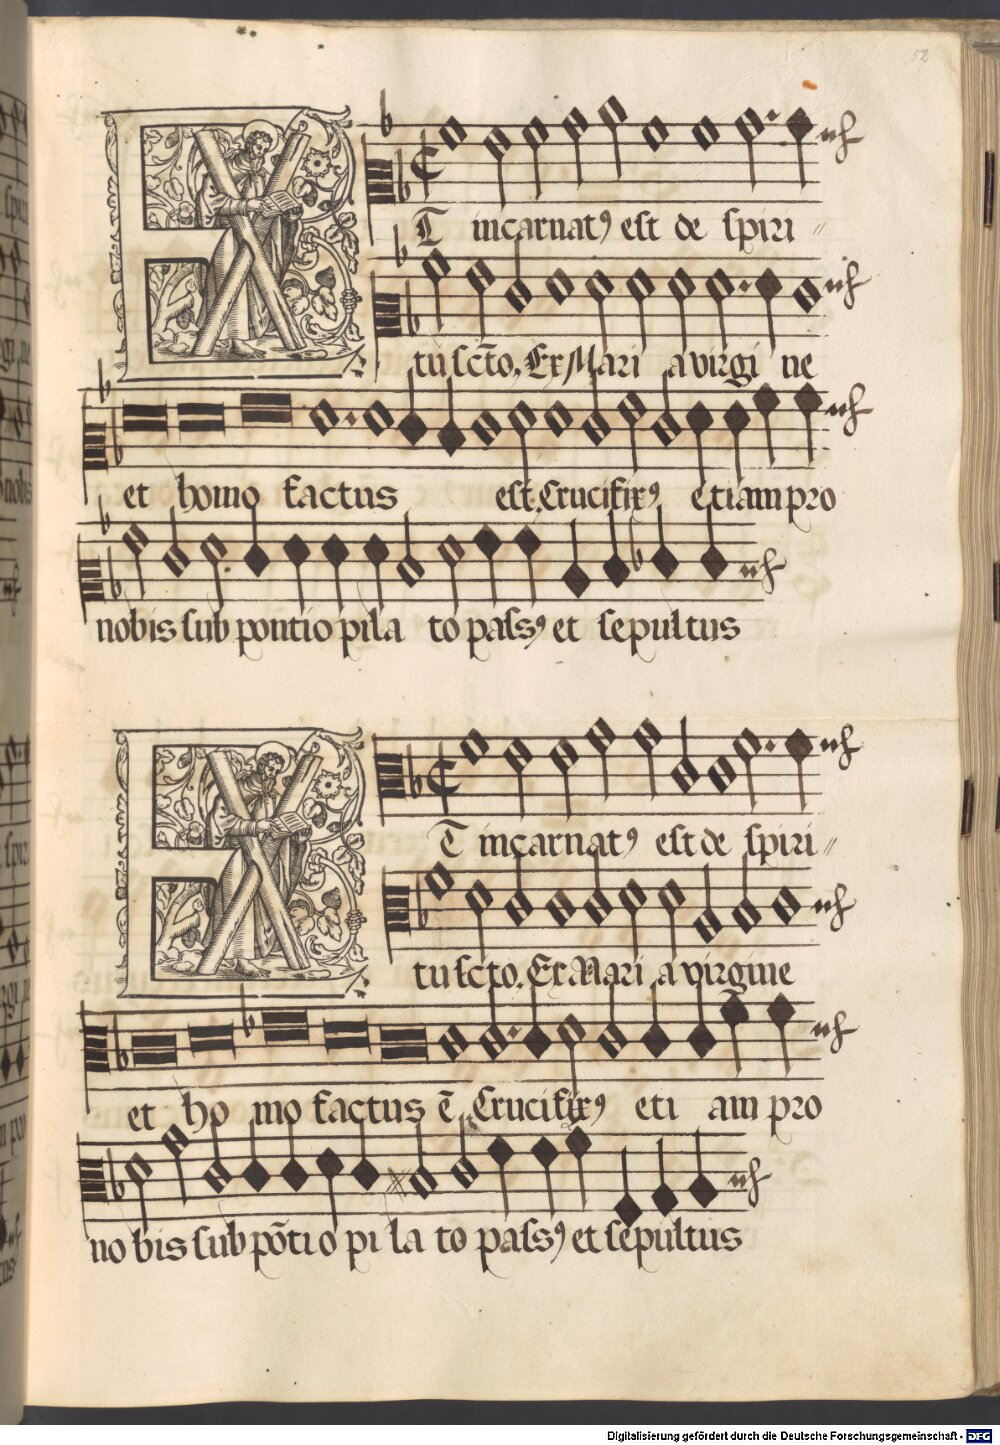 52
ET incarnatꝰ est de spiri〃
tu scto. Ex Mari a virgi ne
et homo factus est. Crucifixꝰ etiam pro
nobis sub pontio pila to passꝰ et sepultus
ET incarnatꝰ est de spiri〃
tu scto. Ex Mari a virgine
et ho mo factus ē. Crucifixꝰ eti am pro
no bis sub pōti o pi la to passꝰ et sepultus
Digitalisierung gefördert durch die Deutsche Forschungsgemeinschaft - DFG